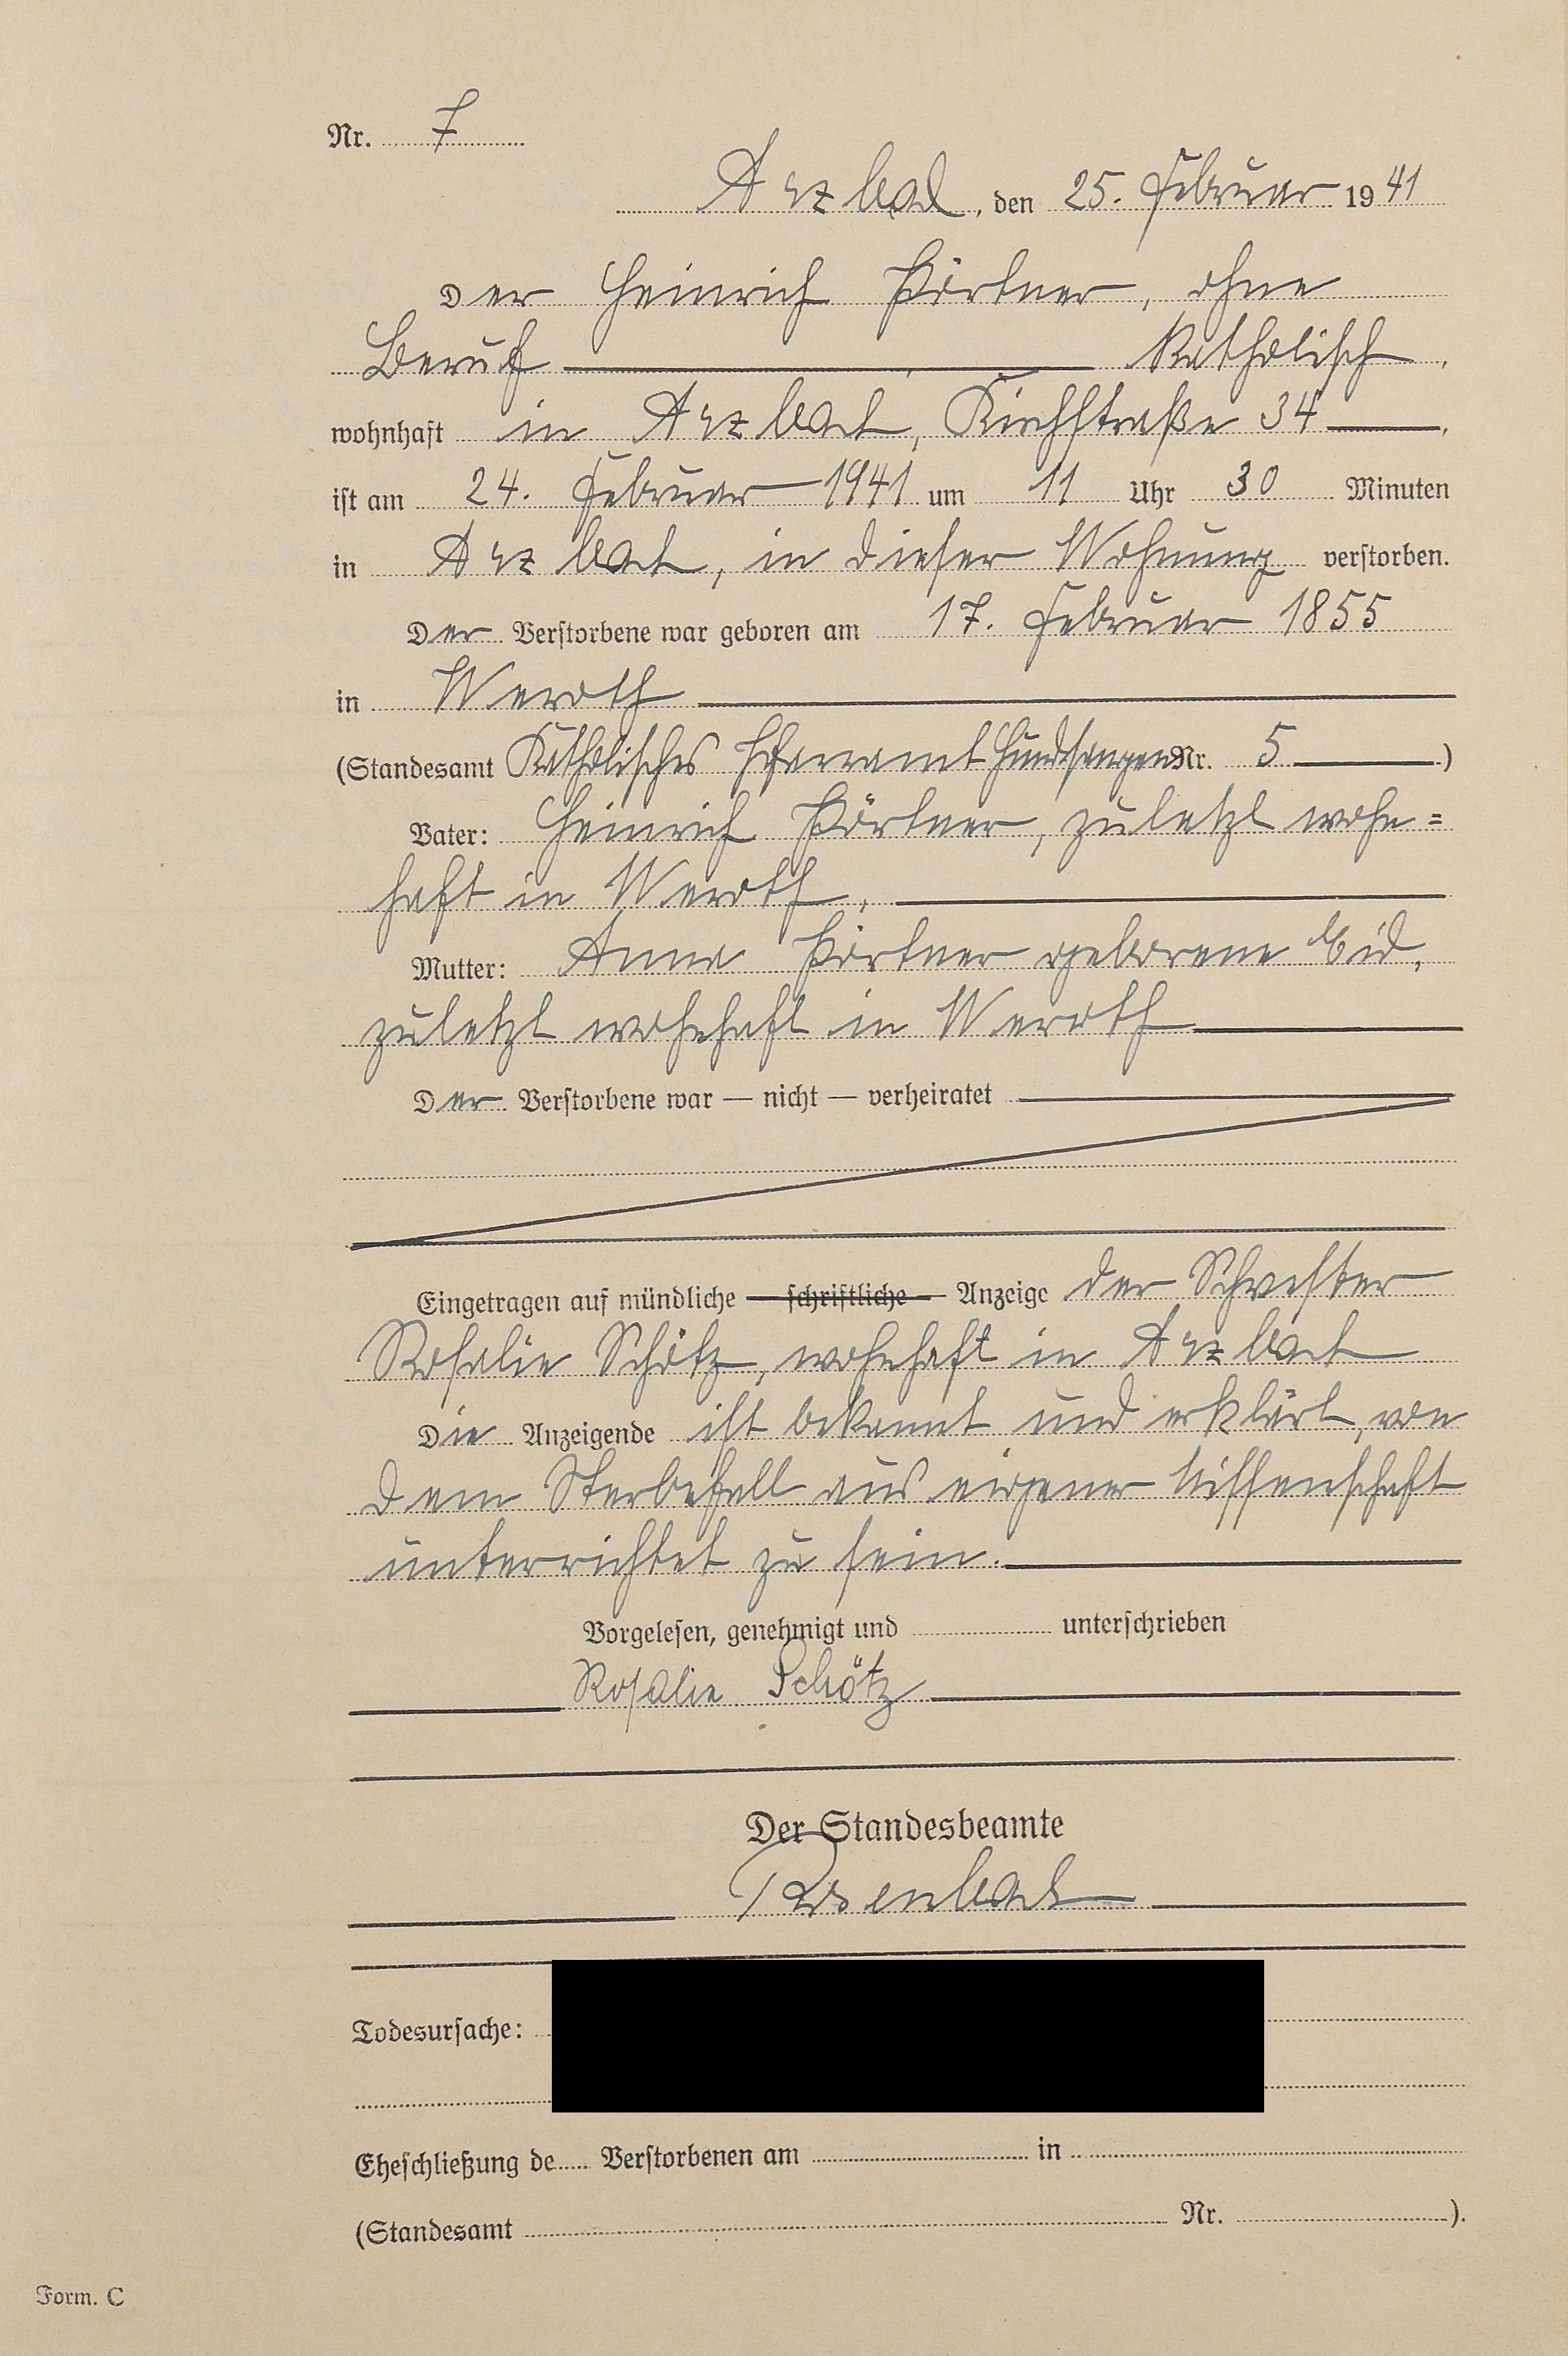 Nr. 7
Arzbach, den 25. Februar 1941
Der Heinrich Pörtner, ohne
Beruf katholisch,
wohnhaft in Arzbach, Kirchstraße 34,
ist am 24. Februar 1941 um 11 Uhr 30 Minuten
in Arzbach, in dieser Wohnung verstorben.
Der Verstorbene war geboren am 17. Februar 1855
in Weroth
(Standesamt Katholisches Pfarramt Hundsangen Nr. 5)
Vater: Heinrich Pörtner, zuletzt wohn=
haft in Weroth,
Mutter: Anna Pörtner geborene
zuletzt wohnhaft in Weroth
Der Verstorbene war — nicht — verheiratet
Eingetragen auf mündliche — schriftliche — Anzeige der Schwester
Rosalie Schötz, wohnhaft in Arzbach
Die Anzeigende ist bekannt und erklärt, von
dem Sterbefall aus eigener Wissenschaft
unterrichtet zu sein.
Vorgelesen, genehmigt und unterschrieben
Rosalie Schötz
Der Standesbeamte
Todesursache:
Eheschließung de Verstorbenen am in
(Standesamt Nr. ).
Form. C